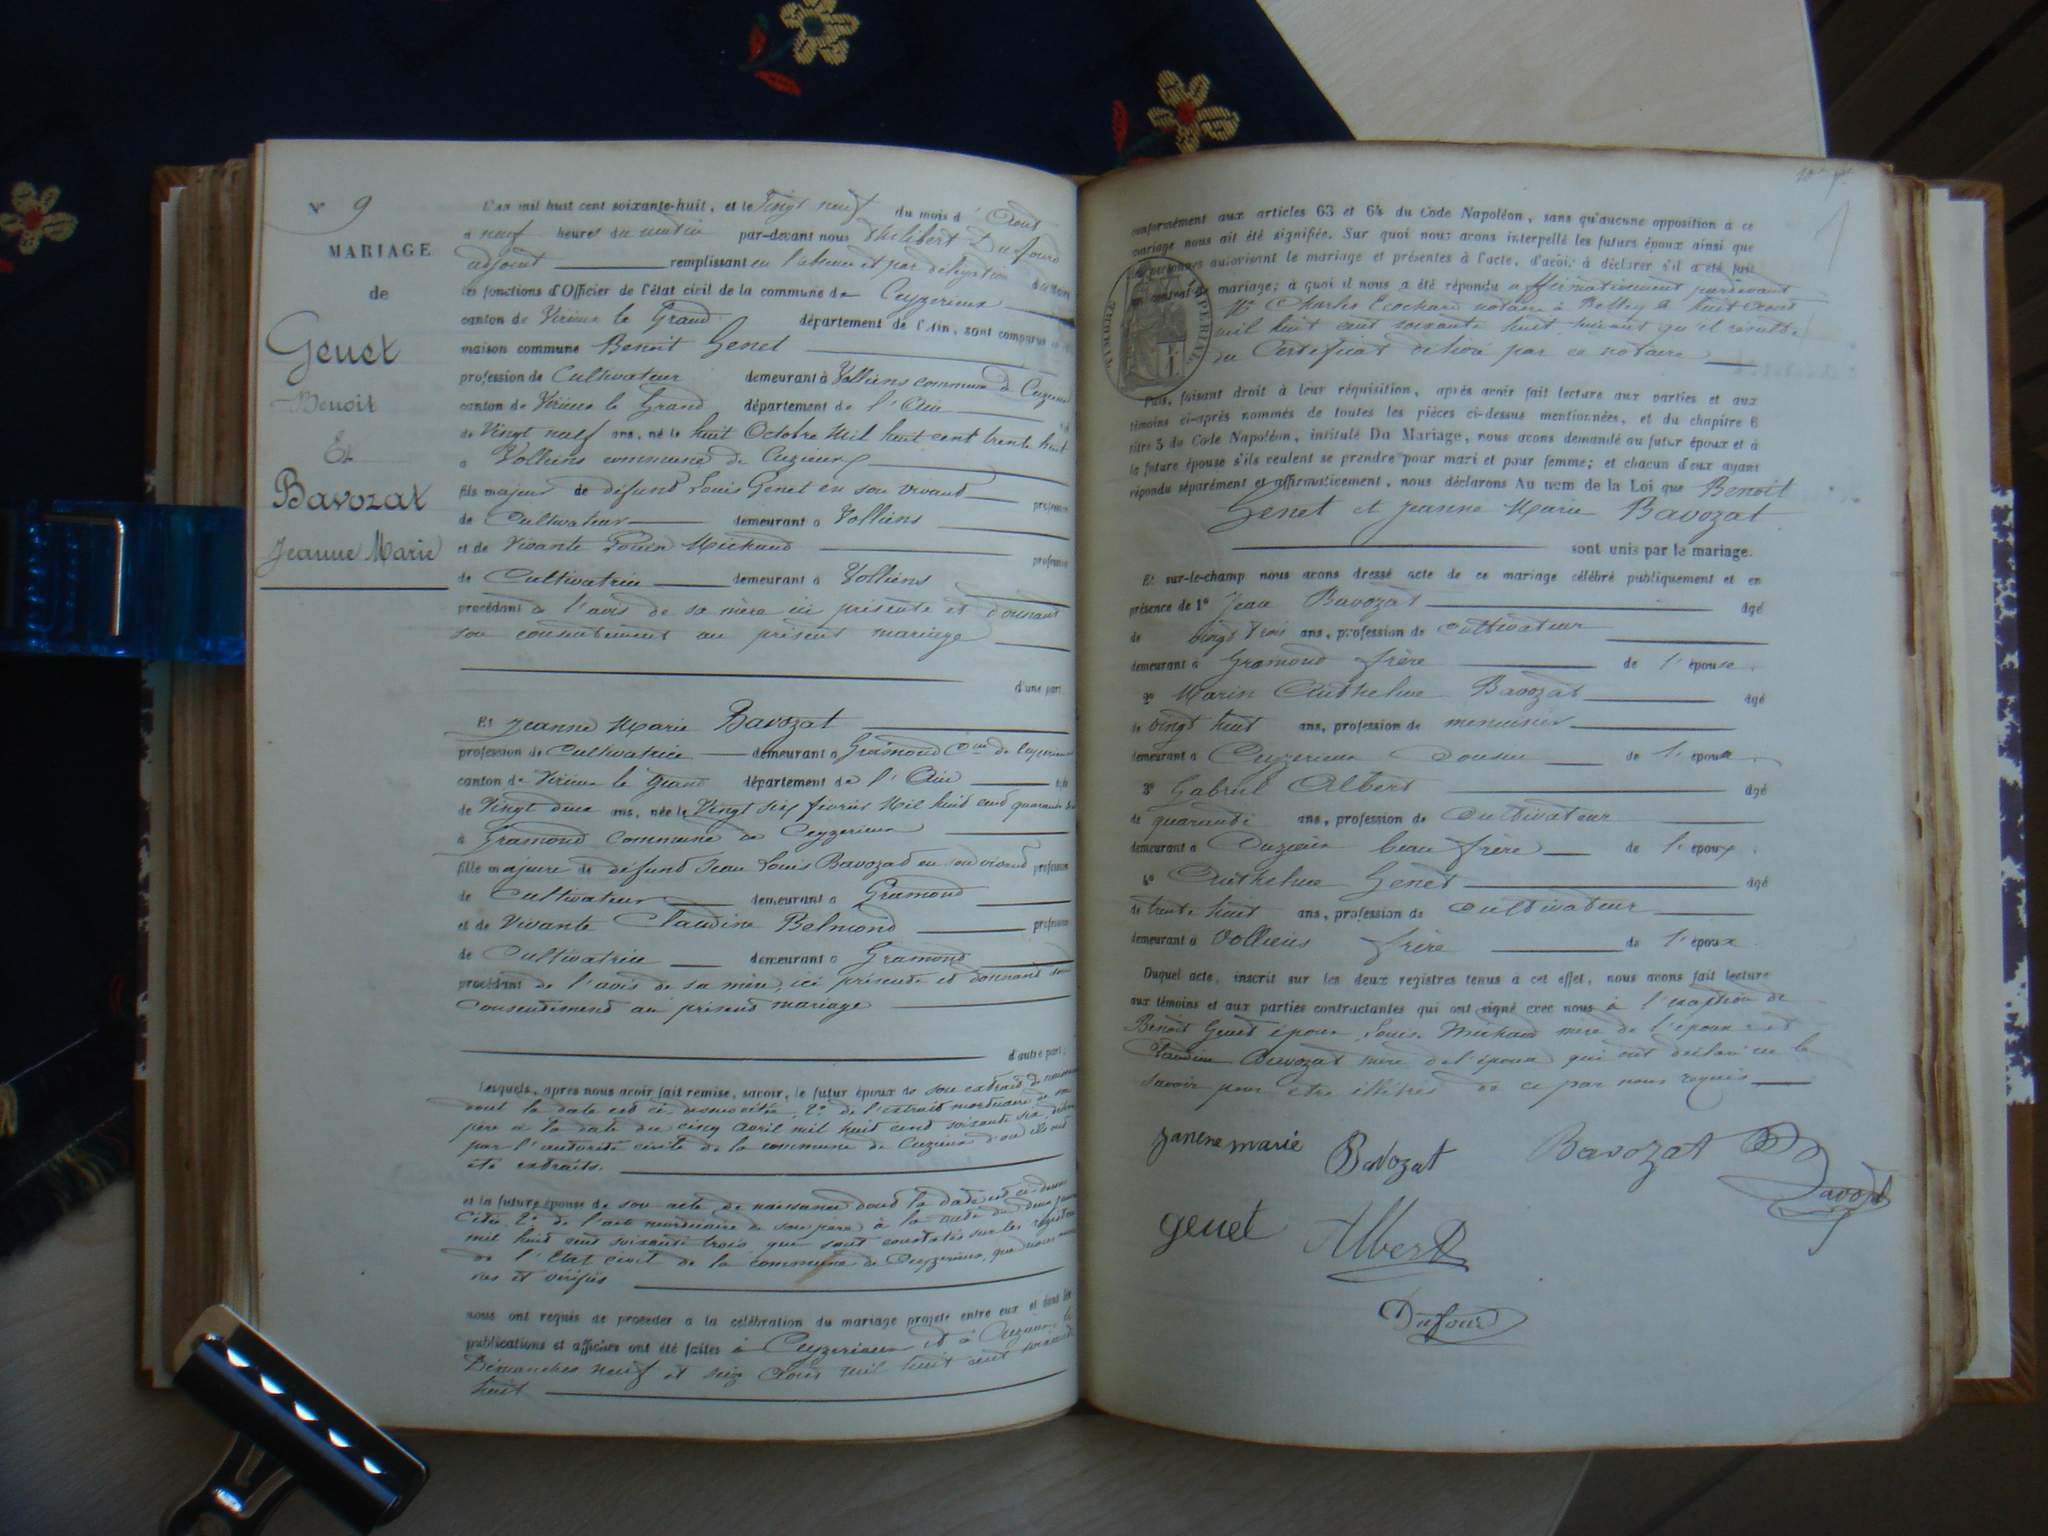 N° 9
MARIAGE
de
Genet
Benoit
Et
Bavozat
Jeanne Marie
L'an mil huit cent soixante-huit, et le Vingt neuf du mois d'Aout
à neuf heures du matin par-devant nous Philibert Dufour
adjoint remplissant en l'absence et par délégation du Maire
les fonctions d'Officier de l'état civil de la commune de Ceyzerieux
canton de Virieux le Grand département de l'Ain, sont comparus en
maison commune Benoit Genet
profession de Cultivateur demeurant à Volliens commune de Cuzieux
canton de Virieux le Grand département de l'Ain
de Vingt neuf ans, né le huit Octobre Mil huit cent trente huit
à Volliens commune de Cuzieux
fils majeur de défunt Louis Genet en son vivant profession
de Cultivateur demeurant à Volliens
et de Vivante Michaud profession
de Cultivatrice demeurant à Volliens
procédant de l'avis de sa mère ici présente et donnant
son consentement au présent mariage
d'une part.
Et Jeanne Marie Bavozat
profession de Cultivatrice demeurant à Gramond Cne de Ceyzerieux
canton de Virieux le Grand département de l'Ain
de Vingt deux ans, née le Vingt six février Mil huit cent quarante
à Gramond Commune de Ceyzerieux
fille majeure de défunt Jean Louis Bavozat en son vivant profession
de Cultivateur demeurant à Gramond
et de Vivante Claudine Belmond profession
de Cultivatrice demeurant à Gramond
procédant de l'avis de sa mère, ici présente et donnant son
consentement au présent mariage
d'autre part.
Lesquels, après nous avoir fait remise, savoir, le futur époux de son extrait de naissance
dont la date est ci-dessus citée, 2° de l'extrait mortuaire de son
père à la date du cinq avril mil huit cent soixante six délivré
par l'autorité civile de la commune de Cuzieux d'où ils ont
été extraits.
et la future épouse de son acte de naissance dont la date est ci-dessus
citée, 2° de l'acte mortuaire de son père à la date du deux
mil huit cent soixante trois que sont constatés sur les registres
de l'Etat civil de la commune de Ceyzerieux, que nous avons
vus et vérifiés
nous ont requis de procéder à la célébration du mariage projeté entre eux et dont les
publications et affiches ont été faites à Ceyzerieux et à Cuzieux les
Dimanches neuf et seize Aout mil huit cent soixante
huit
conformément aux articles 63 et 64 du Code Napoléon, sans qu'aucune opposition à ce
mariage nous ait été signifiée. Sur quoi nous avons interpellé les futurs époux ainsi que
les personnes autorisant le mariage et présentes à l'acte, d'avoir à déclarer s'il a été fait
un contrat de mariage; à quoi il nous a été répondu affirmativement pardevant
Me Charles Ecochard notaire à Belley le huit Aout
mil huit cent soixante huit, suivant qu'il résulte
du Certificat délivré par ce notaire
TIMBRE IMPERIAL
Puis, faisant droit à leur réquisition, après avoir fait lecture aux parties et aux
témoins ci-après nommés de toutes les pièces ci-dessus mentionnées, et du chapitre 6
titre 5 du Code Napoléon, intitulé Du Mariage, nous avons demandé au futur époux et à
la future épouse s'ils veulent se prendre pour mari et pour femme; et chacun d'eux ayant
répondu séparément et affirmativement, nous déclarons Au nom de la Loi que Benoit
Genet et Jeanne Marie Bavozat
sont unis par le mariage.
Et sur-le-champ nous avons dressé acte de ce mariage célébré publiquement et en
présence de 1° Jean Bavozat âgé
de vingt trois ans, profession de Cultivateur
demeurant à Gramond frère de l'épouse.
2° Marin Anthelme Bavozat âgé
de vingt huit ans, profession de menuisier
demeurant à Ceyzerieux cousin de l'épouse.
3° Gabriel Albert âgé
de quarante ans, profession de Cultivateur
demeurant à Cuzieux beau frère de l'époux.
4° Anthelme Genet âgé
de trente huit ans, profession de Cultivateur
demeurant à Volliens frère de l'époux
Duquel acte, inscrit sur les deux registres tenus à cet effet, nous avons fait lecture
aux témoins et aux parties contractantes qui ont signé avec nous à l'exception de
Benoit Genet époux, Michaud mère de l'époux et
Claudine Bavozat mère de l'épouse qui ont déclaré ne le
savoir pour être illétrés de ce par nous requis
janene marie Bavozat Bavozat Bavozat
genet Albert
Dufour